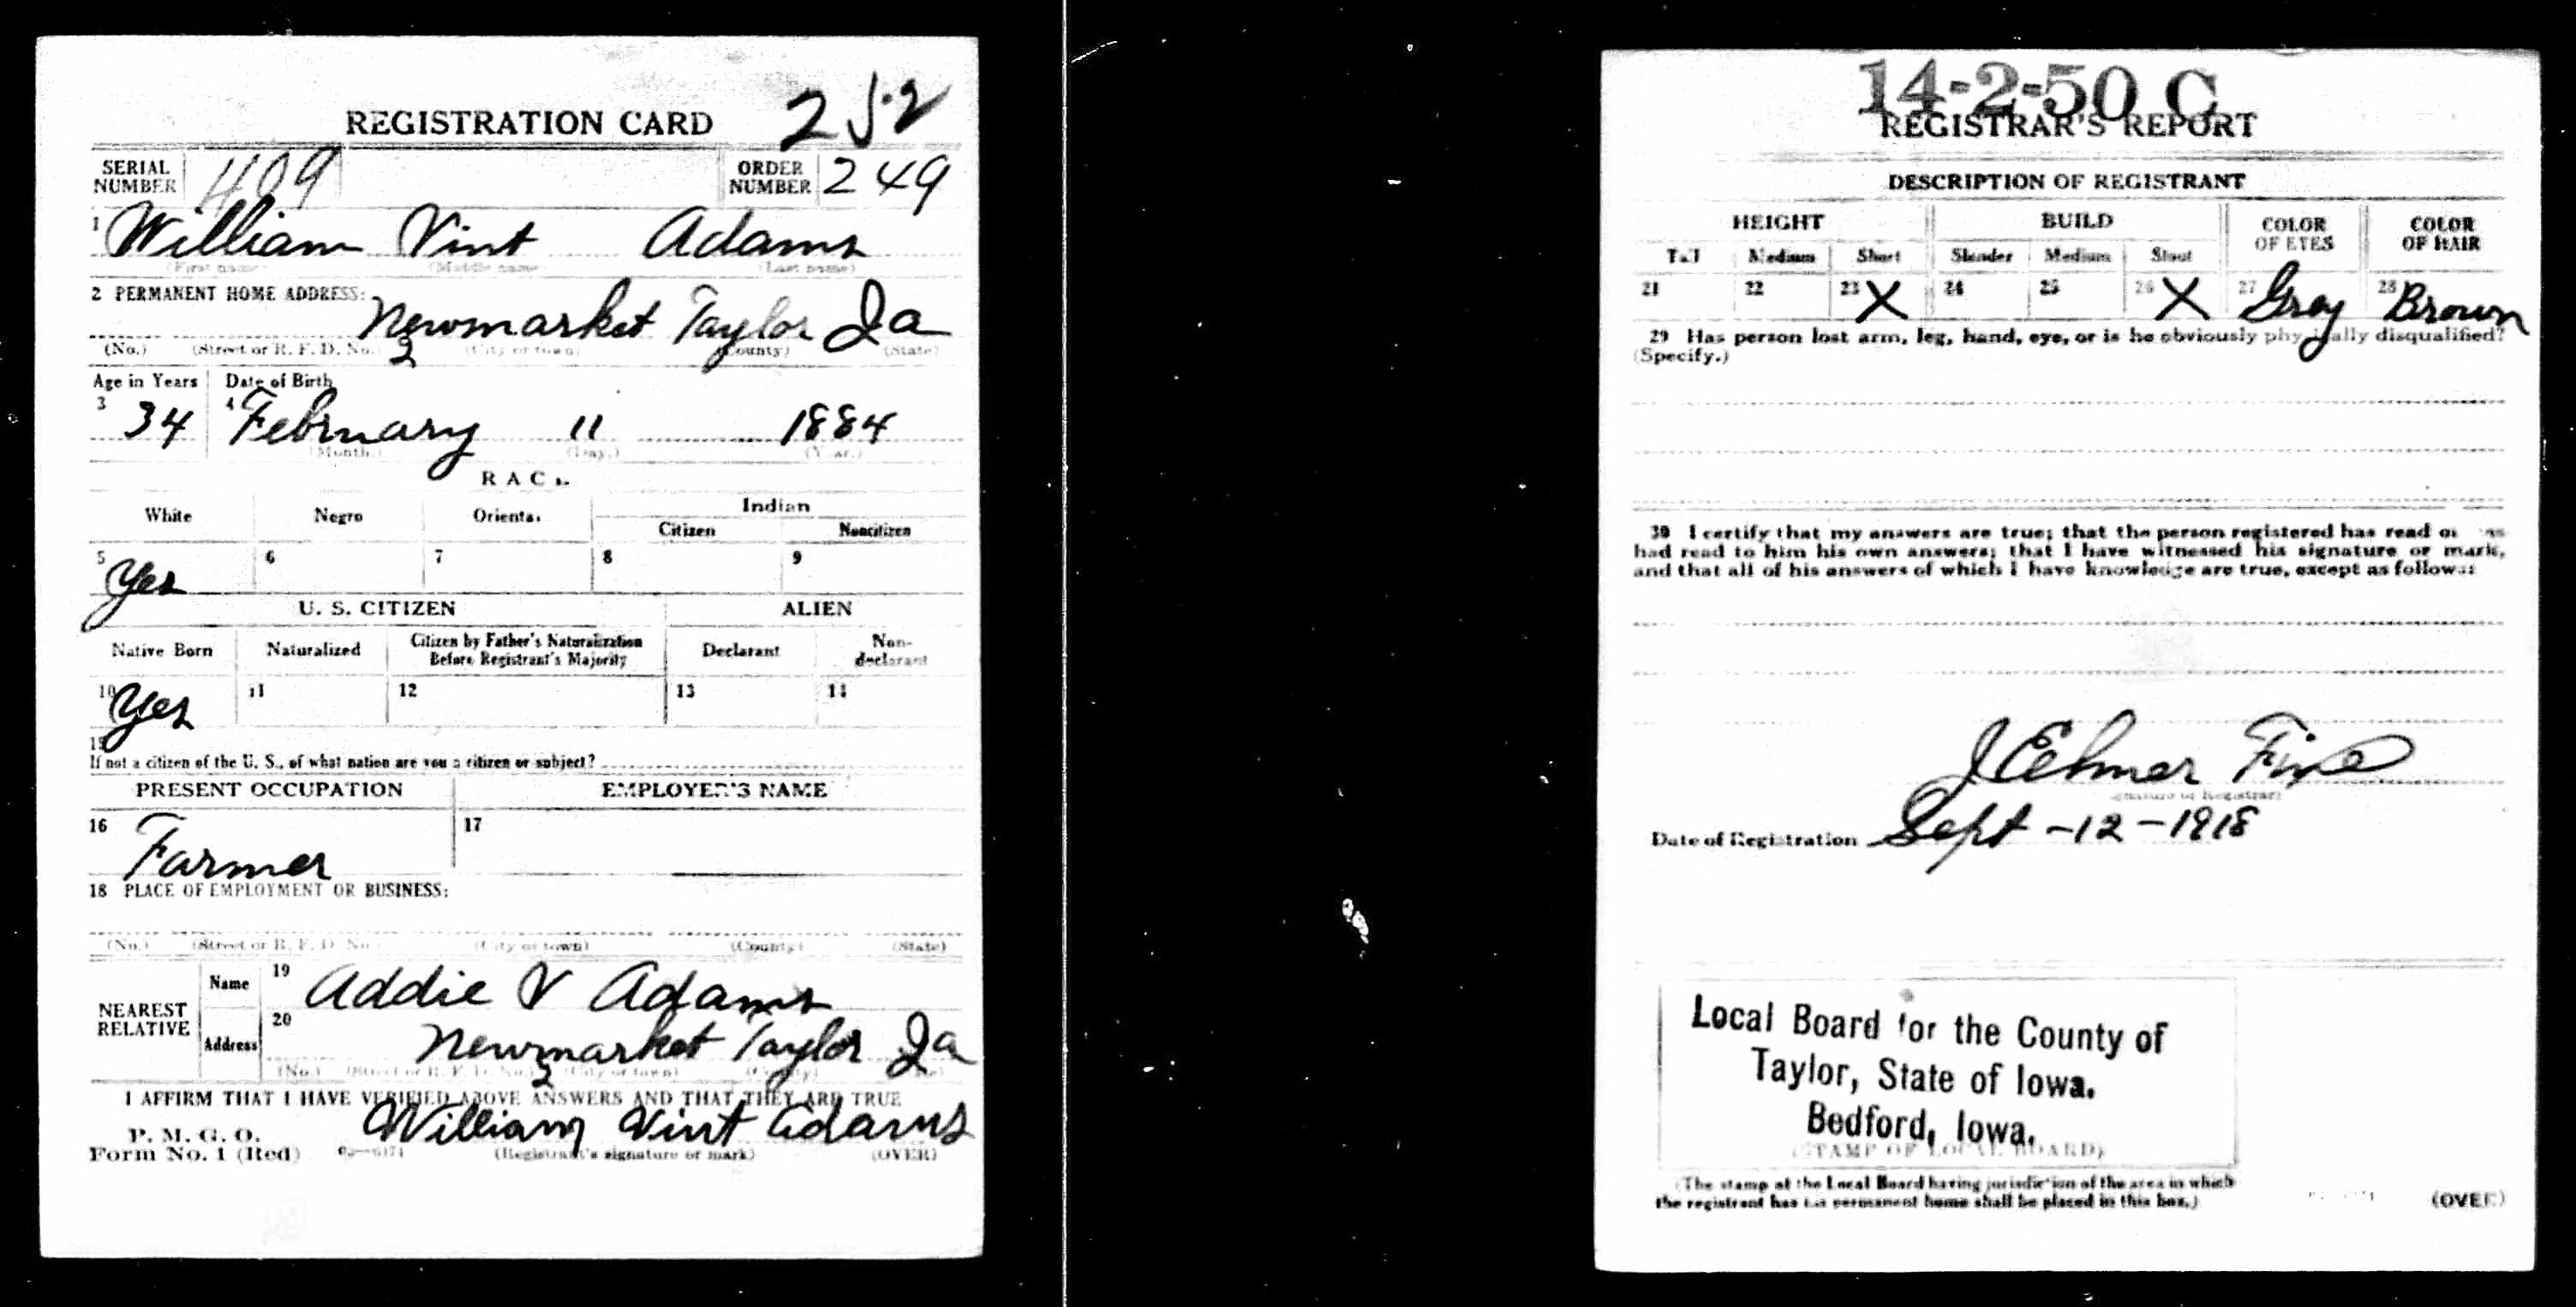 252
REGISTRATION CARD
SERIAL NUMBER 409 ORDER NUMBER 249
1 William Vint Adams
(First name) (Middle name) (Last name)
2 PERMANENT HOME ADDRESS:
Newmarket Taylor Ia
(No.) (Street or R. F. D. No.) 2 (City or town) (County) (State)
Age in Years Date of Birth
3 34 4 February 11 1884
(Month.) (Day.) (Year.)
RACE
White Negro Oriental Indian
Citizen Noncitizen
5 Yes 6 7 8 9
U. S. CITIZEN ALIEN
Native Born Naturalized Citizen by Father's Naturalization Before Registrant's Majority Declarant Non-declarant
10 Yes 11 12 13 14
15
If not a citizen of the U. S., of what nation are you a citizen or subject?
PRESENT OCCUPATION EMPLOYER'S NAME
16 Farmer 17
18 PLACE OF EMPLOYMENT OR BUSINESS:
(No.) (Street or R. F. D. No.) (City or town) (County) (State)
NEAREST RELATIVE
Name 19 Addie V Adams
Address 20 Newmarket Taylor Ia
(No.) (Street or R. F. D. No.) 2 (City or town) (County)
I AFFIRM THAT I HAVE VERIFIED ABOVE ANSWERS AND THAT THEY ARE TRUE
P. M. G. O.
Form No. 1 (Red) William Vint Adams
(Registrant's signature or mark) (OVER)
14-2-50 C
REGISTRAR'S REPORT
DESCRIPTION OF REGISTRANT
HEIGHT BUILD COLOR OF EYES COLOR OF HAIR
Tall Medium Short Slender Medium Stout
21 22 23 X 24 25 26 X 27 Gray 28 Brown
29 Has person lost arm, leg, hand, eye, or is he obviously physically disqualified?
(Specify.)
30 I certify that my answers are true; that the person registered has read or has
had read to him his own answers; that I have witnessed his signature or mark,
and that all of his answers of which I have knowledge are true, except as follows:
J Elmer Fine
(Signature of Registrar)
Date of Registration Sept -12-1918
Local Board for the County of
Taylor, State of Iowa.
Bedford, Iowa.
(STAMP OF LOCAL BOARD)
(The stamp of the Local Board having jurisdiction of the area in which
the registrant has his permanent home shall be placed in this box.)
(OVER)